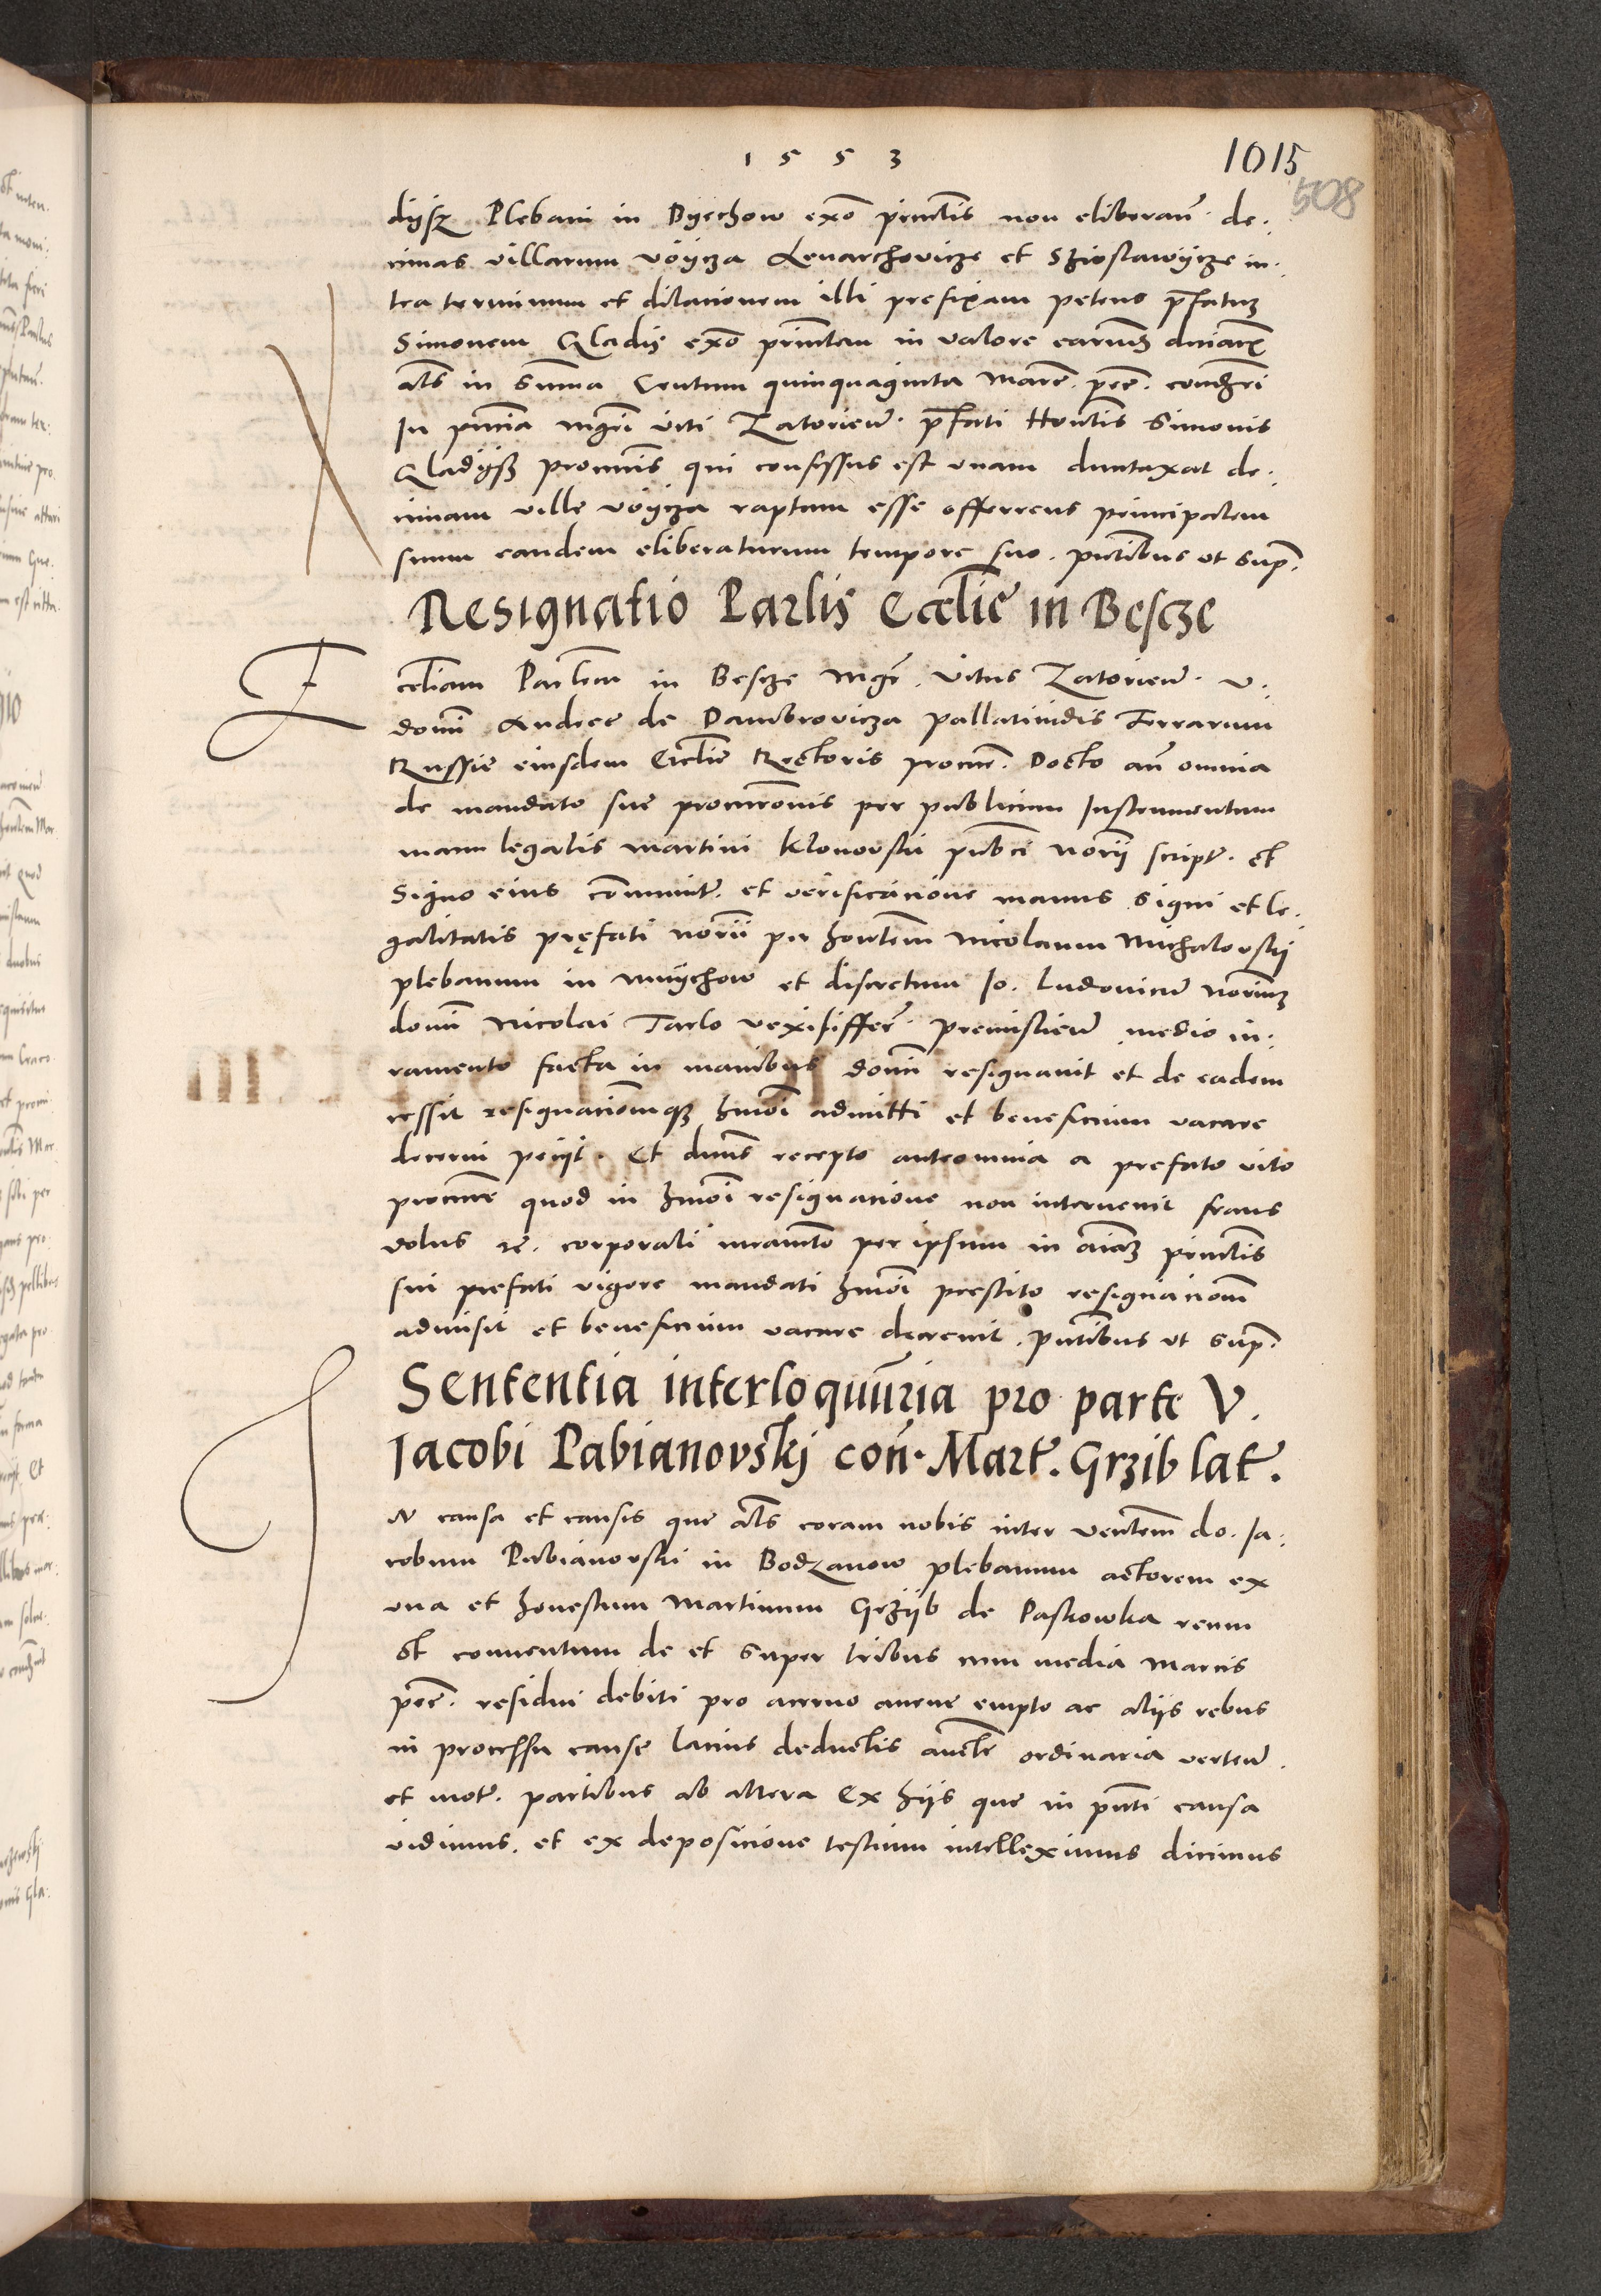 1 5 5 3
1015
508
dijsz Plebani in Dyechow exo͠ prin͠ctlis non eliberan͠. de.
cimas villarum Voijcza Lenarchovicze et Szioslawijcze in.
tra terminum et dilacionem illi prefixam petens pr͠fatuʒ
Simonem Gladis exo͠ prin͠tem in valore earum͠
al͠s in Sum͠ma Centum quinquaginta Marc͠. pec͠.
In pn͠cia Mgr͠i Viti Zatorien͠. pr͠fati Hon͠tis Simonis
Gladijsz procur͠is qui confessus est vnam duntaxat de.
cimam ville Voijcza raptam esse offerrens principalem
suum eandem eliberaturum tempore suo. pn͠tibus vt sup͠.
Resignatio Par͠lis Eccl͠ie in Besczе
E ccl͠iam Par͠lem in Bescze Mgr͠. Vitus Zatorien͠. V.
domi͠ Andree de Dambrovicza Pallatinidis Terrarum
Russie eiusdem Eccl͠ie Rectoris procur͠. docto an͠ omnia
de mandato sue procur͠onis per publicum Instrumentum
manu legalis Martini Klonovski pub͠ci nor͠ij script͠. et
Signo eius com͠munit͠. et verificacione manus signi et le.
galitatis pręfati nor͠ij per hon͠tem Nicolaum Michalovskij
plebanum in Mnijchow et discretum Io. Ludovicum͠ nor͠iuʒ
domi͠ Nicolai Tarlo vexiliffer͠. Premislien͠ medio iu.
ramento facta in manibus domi͠ resignauit et de eadem
cessit resignaciom͠qʒ hmo͠i admitti et beneficium vacare
decerni peciit. Et dn͠us recepto anteomnia a prefato Vito
procur͠e quod in hmo͠i resignacione non interuenit fraus
dolus ꝛc. corporali iuram͠to per ipsum in a͠iaʒ prin͠ctlis
sui prefati vigore mandati hmo͠i prestito resignaciom͠
admisit et beneficium vacare decreuit. pn͠tibus vt sup͠.
Sententia interloqutu͠ria pro parte V.
Jacobi Pabianovskj con͠. Mart͠. Grzib lat͠.
I N causa et causis que al͠s coram nobis inter ven͠tem do. Ia.
cobum Pabianovski in Bodzanow plebanum actorem ex
vna et honestum Martinum Grzijb de Paskowka reum
conuentum de et super tribus cum media marcis
pec͠. residui debiti pro aceruo auene empto ac alijs rebus
in processu cause lacius deductis auct͠e ordinaria verten͠.
et mot͠. partibus ab altera Ex hijs que in pn͠ti causa
vidimus. et ex deposicione testium intelleximus dicimus